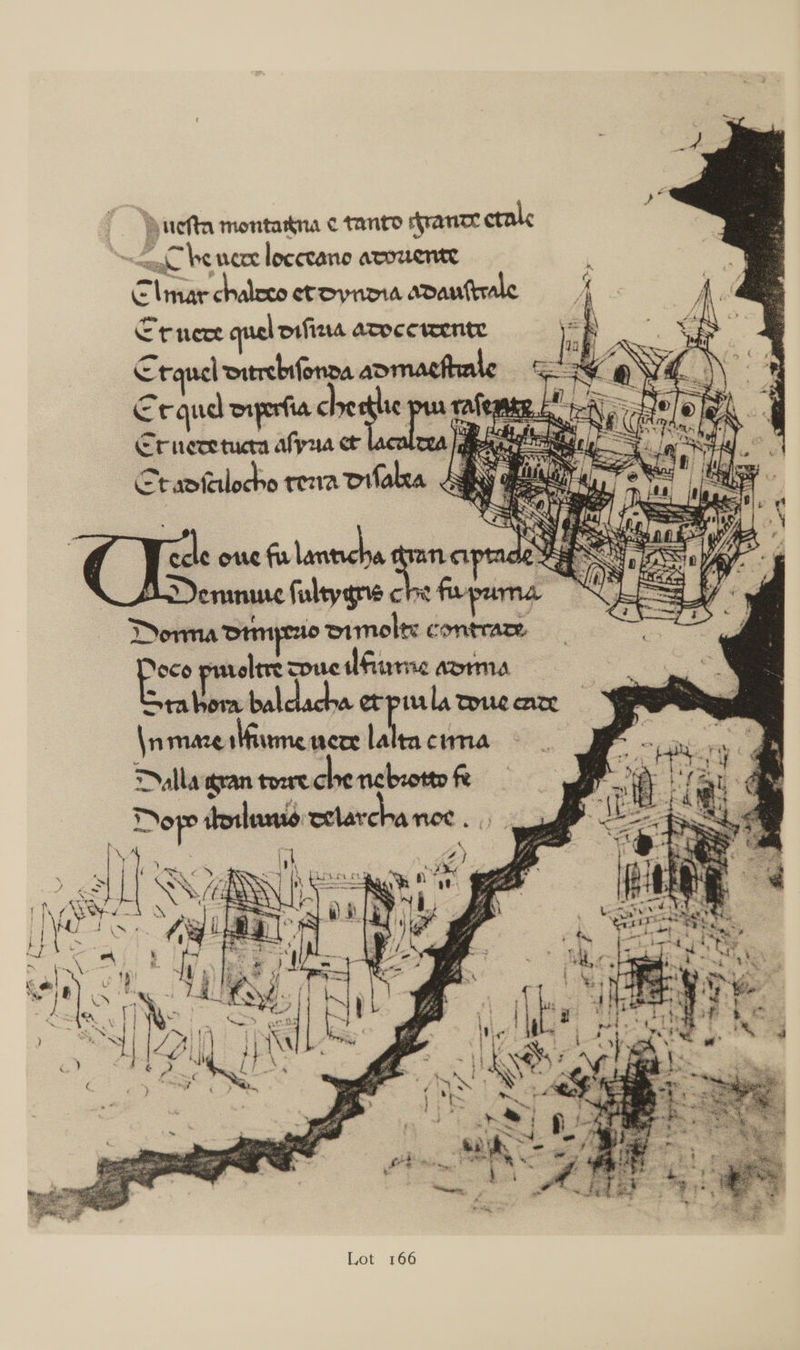 Questa montagna e tanto grande etale
Che uede locceano adouente
El mar chaldeo et dyndia adaustrale
Et uede quel disiria adoccidente
Et quel ditrebisonda admaestrale
Et quel dipersia che eglie piu
Et uede tucta asyria et lacaldea
Et adscilocho terra disabea
Vede oue fu lanticha gran ciptade
De niniue sultygris che fu prima
Donna dimperio dimolte contrade
Poco piu oltre doue ilfiume adima
Sta hora baldacha et piu la doue cade
In mare ilfiume uede lalta cima
Dalla gran torre che nebrotto fe
Dopo ildiluuio delarcha noe .
Lot 166